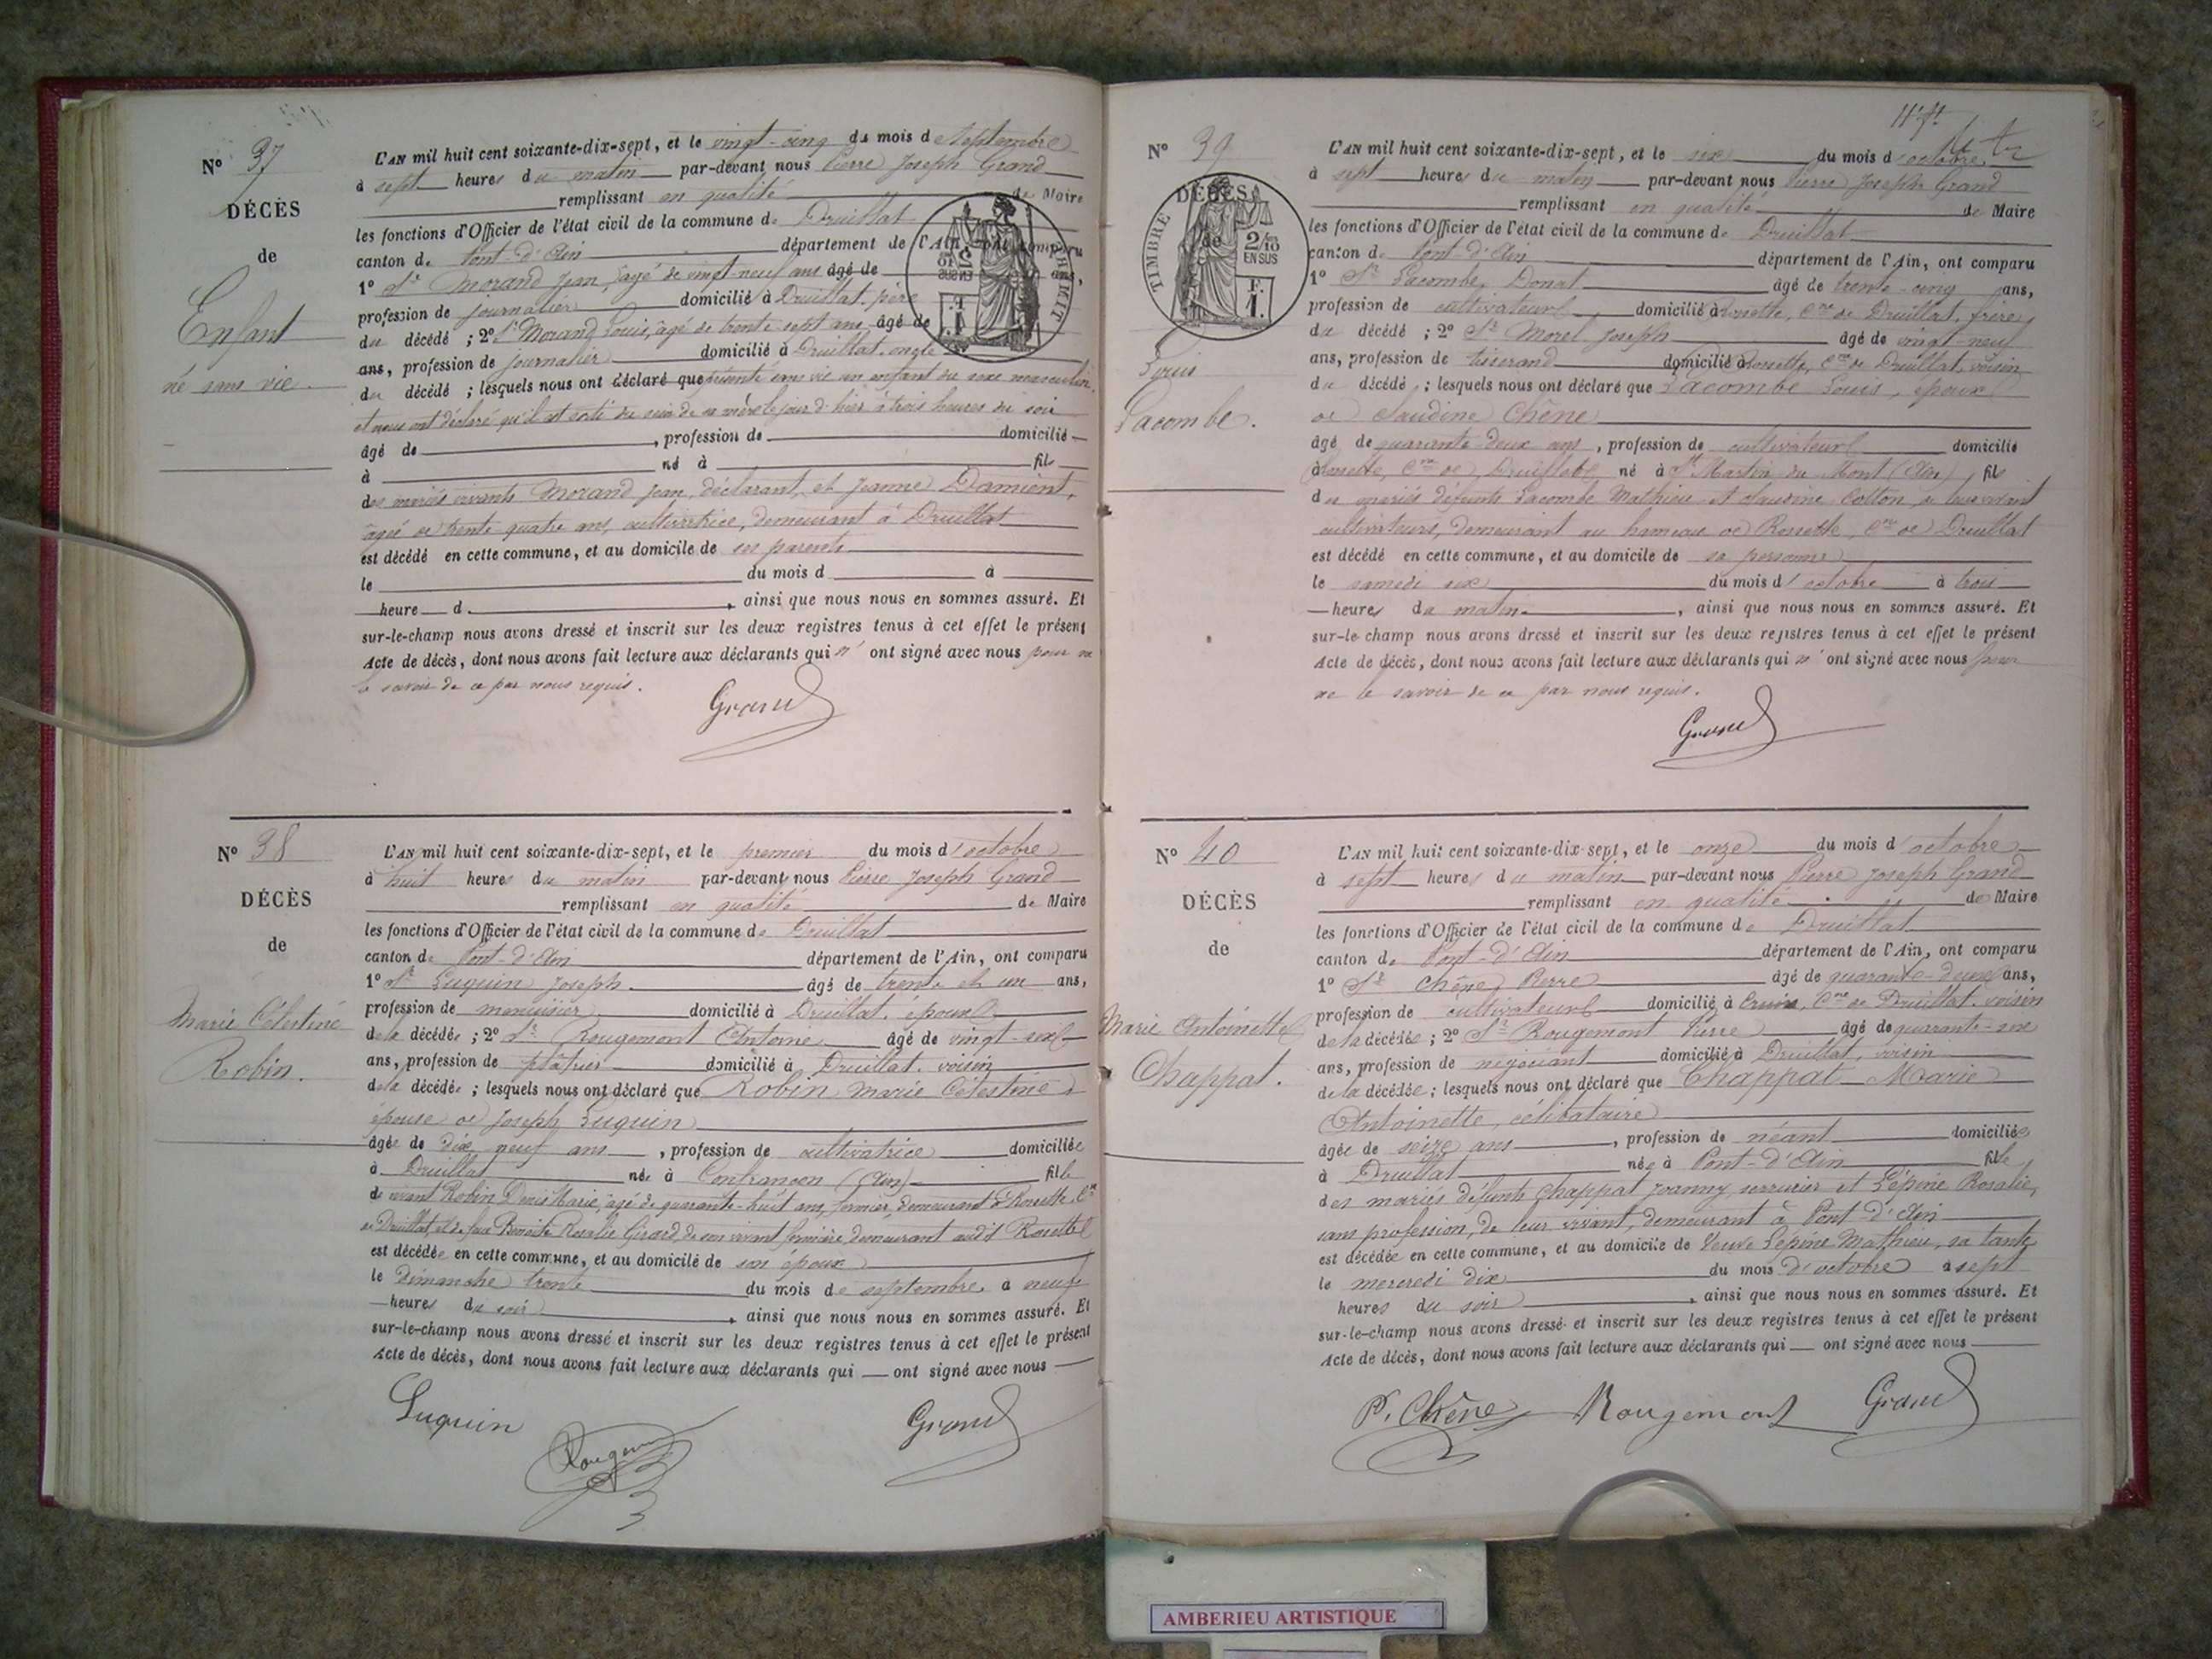 N° 37
DÉCÈS
de
Enfant
né sans vie.
L'AN mil huit cent soixante-dix-sept, et le vingt-cinq du mois de Septembre
à sept heures du matin par-devant nous Pierre Joseph Grand
remplissant en qualité de Maire
les fonctions d'Officier de l'état civil de la commune de Druillat
canton de Pont-d'Ain département de l'Ain, ont comparu
1° Sr Morand Jean, âgé de vingt-neuf ans âgé de ans,
profession de journalier domicilié à Druillat, père
du décédé ; 2° Sr Morand Louis, âgé de trente-sept ans, âgé de
ans, profession de journalier domicilié à Druillat, oncle
du décédé ; lesquels nous ont déclaré que présenté sans vie un enfant du sexe masculin
et nous ont déclaré qu'il est sorti du sein de sa mère le jour d'hier à trois heures du soir
âgé de , profession de domicilié
à né à fils
des mariés vivants Morand Jean, déclarant, et Jeanne Damient,
âgée de trente-quatre ans, cultivatrice, demeurant à Druillat
est décédé en cette commune, et au domicile de ses parents
le du mois d à
heure d , ainsi que nous nous en sommes assuré. Et
sur-le-champ nous avons dressé et inscrit sur les deux registres tenus à cet effet le présent
Acte de décès, dont nous avons fait lecture aux déclarants qui n'ont signé avec nous pour ne
le savoir de ce par nous requis.
Grand
N° 38
DÉCÈS
de
Marie Célestine
Robin.
L'AN mil huit cent soixante-dix-sept, et le premier du mois d'octobre
à huit heures du matin par-devant nous Pierre Joseph Grand
remplissant en qualité de Maire
les fonctions d'Officier de l'état civil de la commune de Druillat
canton de Pont-d'Ain département de l'Ain, ont comparu
1° Sr Luquin Joseph âgé de trente et un ans,
profession de menuisier domicilié à Druillat, époux
de la décédée ; 2° Sr Rougemont Antoine âgé de vingt-six
ans, profession de plâtrier domicilié à Druillat, voisin
de la décédée ; lesquels nous ont déclaré que Robin Marie Célestine
épouse de Joseph Luquin
âgée de dix neuf ans , profession de cultivatrice domiciliée
à Druillat née à Confrançon (Ain) fille
de vivant Robin Denis Marie, âgé de quarante-huit ans, fermier, demeurant à Rossette, Cne
de Druillat, et de feue Benoite Rosalie Girard, de son vivant fermière, demeurant audit Rossette
est décédée en cette commune, et au domicile de son époux
le dimanche trente du mois de septembre à neuf
heures du soir , ainsi que nous nous en sommes assuré. Et
sur-le-champ nous avons dressé et inscrit sur les deux registres tenus à cet effet le présent
Acte de décès, dont nous avons fait lecture aux déclarants qui ont signé avec nous
Luquin
Rougemont
Grand
N° 39
DÉCÈS
de
TIMBRE
2/10
EN SUS
F.
1.
Louis
Lacombe.
L'AN mil huit cent soixante-dix-sept, et le six du mois d'octobre
à sept heures du matin par-devant nous Pierre Joseph Grand
remplissant en qualité de Maire
les fonctions d'Officier de l'état civil de la commune de Druillat
canton de Pont-d'Ain département de l'Ain, ont comparu
1° Sr Lacombe, Donat âgé de trente-cinq ans,
profession de cultivateur domicilié à Rossette, Cne de Druillat, frère
du décédé ; 2° Sr Morel Joseph âgé de vingt-neuf
ans, profession de tisserand domicilié à Rossette, Cne de Druillat, voisin
du décédé ; lesquels nous ont déclaré que Lacombe Louis, époux
de Claudine Chêne
âgé de quarante-deux ans , profession de cultivateur domicilié
à Rossette, Cne de Druillat né à St Martin du Mont (Ain) fils
des mariés défunts Lacombe Mathieu et Claudine Collon, de leur vivant
cultivateurs, demeurant au hameau de Rossette, Cne de Druillat
est décédé en cette commune, et au domicile de sa personne
le samedi six du mois d'octobre à trois
heures du matin , ainsi que nous nous en sommes assuré. Et
sur-le-champ nous avons dressé et inscrit sur les deux registres tenus à cet effet le présent
Acte de décès, dont nous avons fait lecture aux déclarants qui n'ont signé avec nous pour
ne le savoir de ce par nous requis.
Grand
N° 40
DÉCÈS
de
Marie Antoinette
Chappat.
L'AN mil huit cent soixante-dix-sept, et le onze du mois d'octobre
à sept heures du matin par-devant nous Pierre Joseph Grand
remplissant en qualité de Maire
les fonctions d'Officier de l'état civil de la commune de Druillat
canton de Pont-d'Ain département de l'Ain, ont comparu
1° Sr Chêne Pierre âgé de quarante-deux ans,
profession de cultivateur domicilié à Cne de Druillat, voisin
de la décédée ; 2° Sr Rougemont Pierre âgé de quarante-six
ans, profession de négociant domicilié à Druillat, voisin
de la décédée ; lesquels nous ont déclaré que Chappat Marie
Antoinette, célibataire
âgée de seize ans , profession de néant domiciliée
à Druillat née à Pont-d'Ain fille
des mariés défunts Chappat Joanny, serrurier et Lépine Rosalie,
sans profession, de leur vivant, demeurant à Pont-d'Ain
est décédée en cette commune, et au domicile de Veuve Lépine Mathieu, sa tante
le mercredi dix du mois d'octobre à sept
heures du soir , ainsi que nous nous en sommes assuré. Et
sur-le-champ nous avons dressé et inscrit sur les deux registres tenus à cet effet le présent
Acte de décès, dont nous avons fait lecture aux déclarants qui ont signé avec nous
P. Chêne Rougemont Grand
AMBERIEU ARTISTIQUE